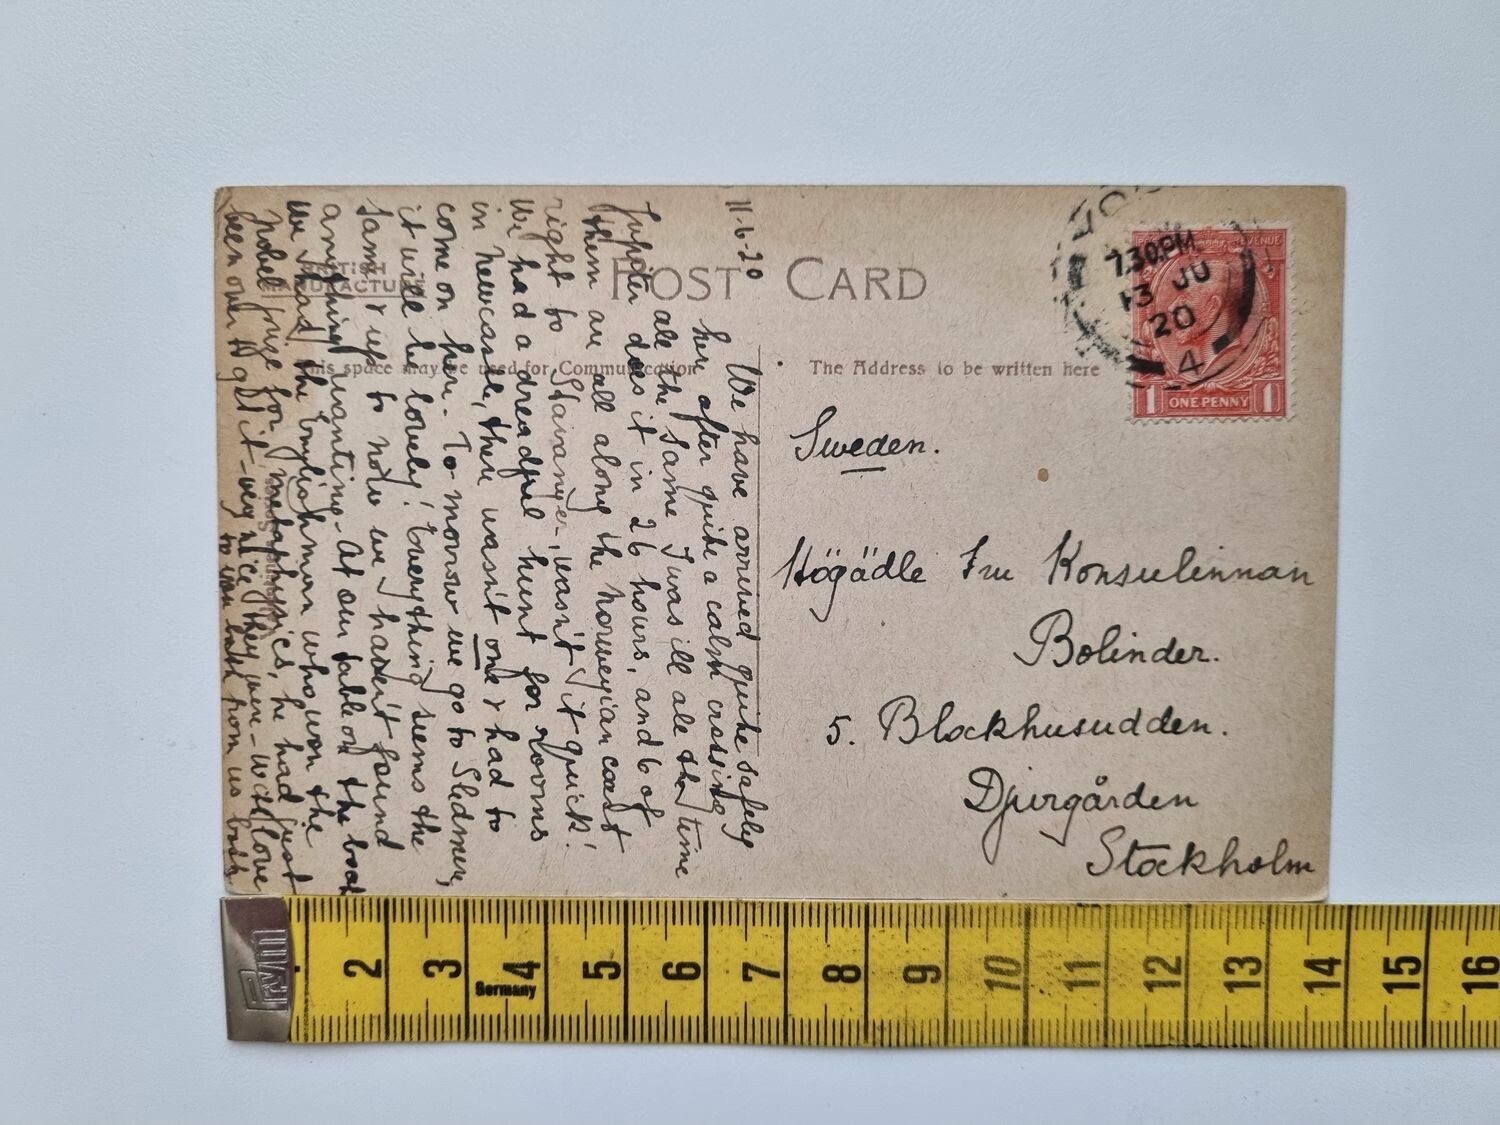 POST CARD
BRITISH
MANUFACTURE
This space may be used for Communication
The Address to be written here
REVENUE
1 ONE PENNY 1
7.30PM
13 JU
20
4
11-6-20
We have arrived quite safely
here after quite a calm crossing
all the same I was ill all the time
Jupiter does it in 26 hours, and 6 of
them are all along the Norwegian coast
right to Stavanger, wasn't it quick!
We had a dreadful hunt for rooms
in Newcastle, there wasn't one & had to
come on here. To morrow we go to Sledmere,
it will be lovely! Everything seems the
same & up to now we haven't found
anything wanting. At our table on the boat
we had the Englishman who won the
Nobel prize for metaphysics, he had just
been over to get it - very nice they were - With love
to you both from us both
Sweden.
Högädle Fru Konsulinnan
Bolinder.
5. Blockhusudden.
Djurgården
Stockholm
PM
2 3 4 5 6 7 8 9 10 11 12 13 14 15 16
Germany